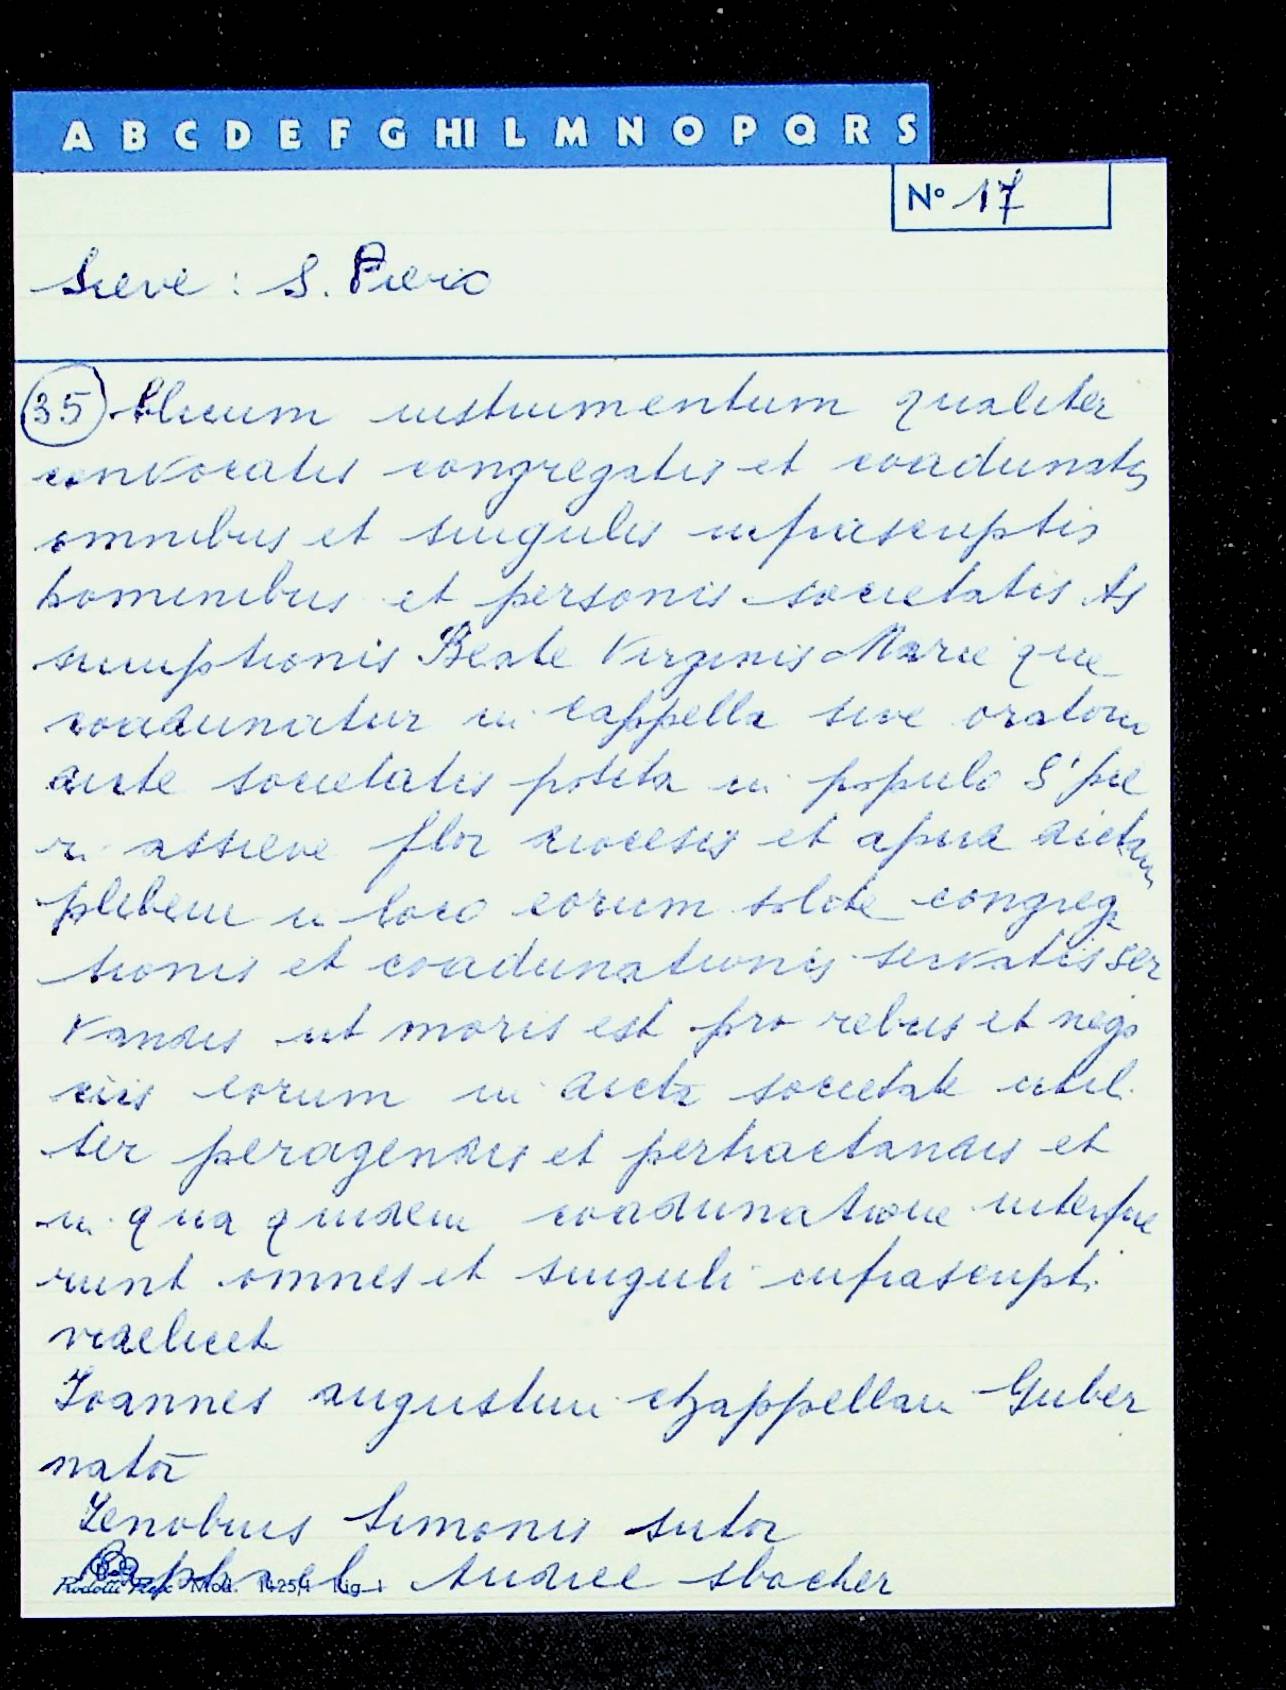 A B C D E F G HI L M N O P Q R S
N° 17
Sieve : S. Piero
35 Alium instrumentum qualiter
convocatis congregatis et coadunatis
omnibus et singulis infrascriptis
hominibus et personis societatis As
sumptionis Beate Virginis Marie que
coadunatur in cappella sive oratorio
dicte societatis posita in populo S' pie
ri assieve flor diocesis et apud dictam
plebem in loco eorum solite congrega
tionis et coadunationis servatis ser
vandis ut moris est pro rebus et nego
ciis eorum in dicta societate utili
ter peragendis et pertractandis et
in qua quidem coadunatione interfue
runt omnes et singuli infrascripti
videlicet
Joannes augustini chappellani Guber
nator
Zenobius Simonis sutor
Raphael Andree
Mod. 1425/1 Rig. 1